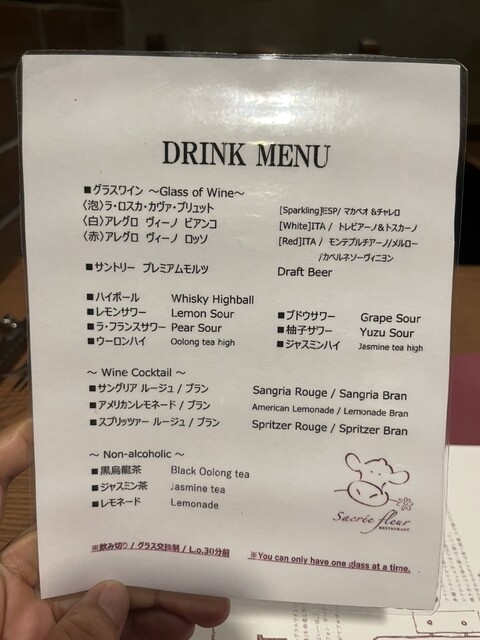 DRINK MENU
■グラスワイン ～Glass of Wine～
〈泡〉ラ・ロスカ・カヴァ・ブリュット [Sparkling]ESP/ マカベオ &チャレロ
〈白〉アレグロ ヴィーノ ビアンコ [White]ITA / トレビアーノ&トスカーノ
〈赤〉アレグロ ヴィーノ ロッソ [Red]ITA / モンテプルチアーノ/メルロー
/カベルネソーヴィニヨン
■サントリー プレミアムモルツ Draft Beer
■ハイボール Whisky Highball
■レモンサワー Lemon Sour ■ブドウサワー Grape Sour
■ラ・フランスサワー Pear Sour ■柚子サワー Yuzu Sour
■ウーロンハイ Oolong tea high ■ジャスミンハイ Jasmine tea high
～ Wine Cocktail ～
■サングリア ルージュ / ブラン Sangria Rouge / Sangria Bran
■アメリカンレモネード / ブラン American Lemonade / Lemonade Bran
■スプリッツァー ルージュ / ブラン Spritzer Rouge / Spritzer Bran
～ Non-alcoholic ～
■黒烏龍茶 Black Oolong tea
■ジャスミン茶 Jasmine tea
■レモネード Lemonade
Sacrée fleur
RESTAURANT
※飲み切り / グラス交換制 / L.o.30分前 ※You can only have one glass at a time.